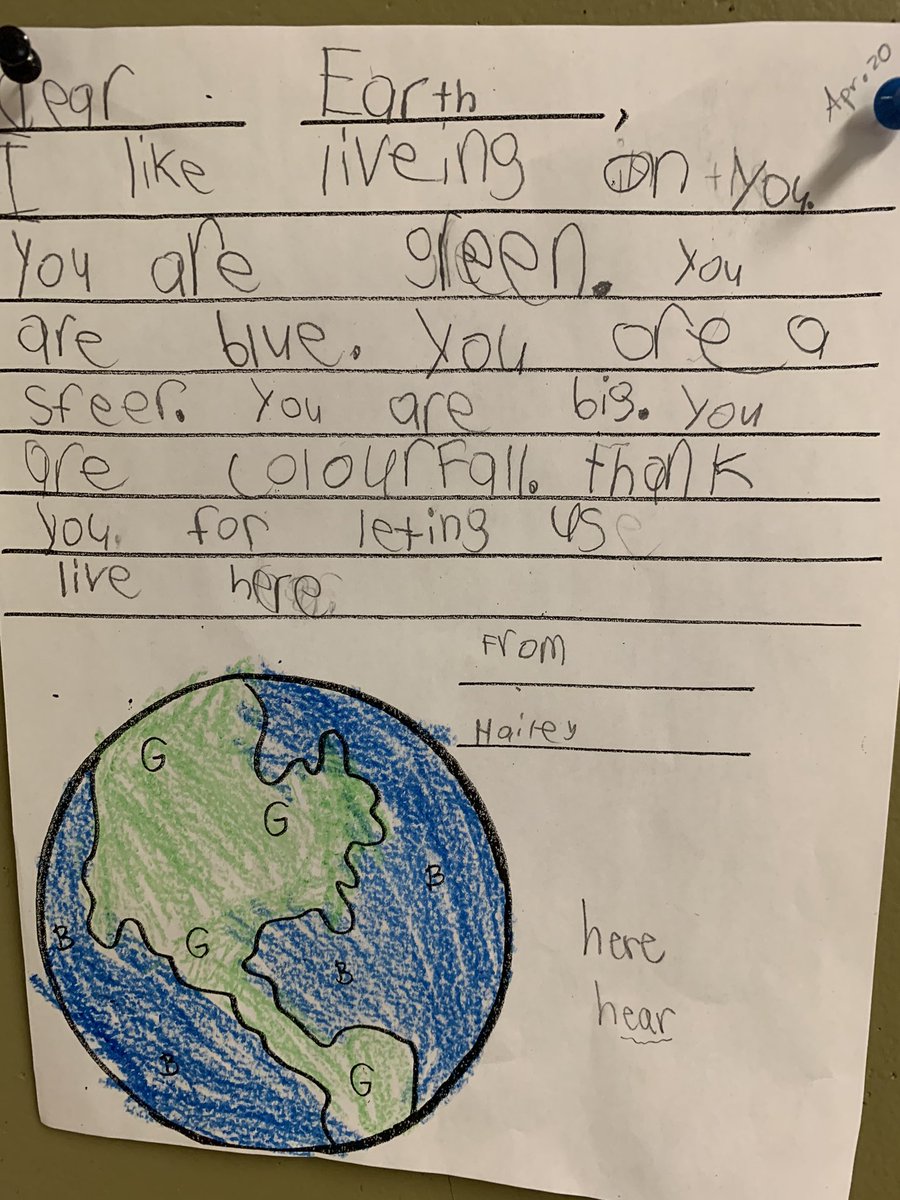 dear Earth,
Apr. 20
I like liveing on you.
you are green. you
are blue. you are a
sfeer. you are big. you
are colourfall. thank
you for leting us
live here
From
Hailey
G
G
B
B
G
B
B
G
here
hear